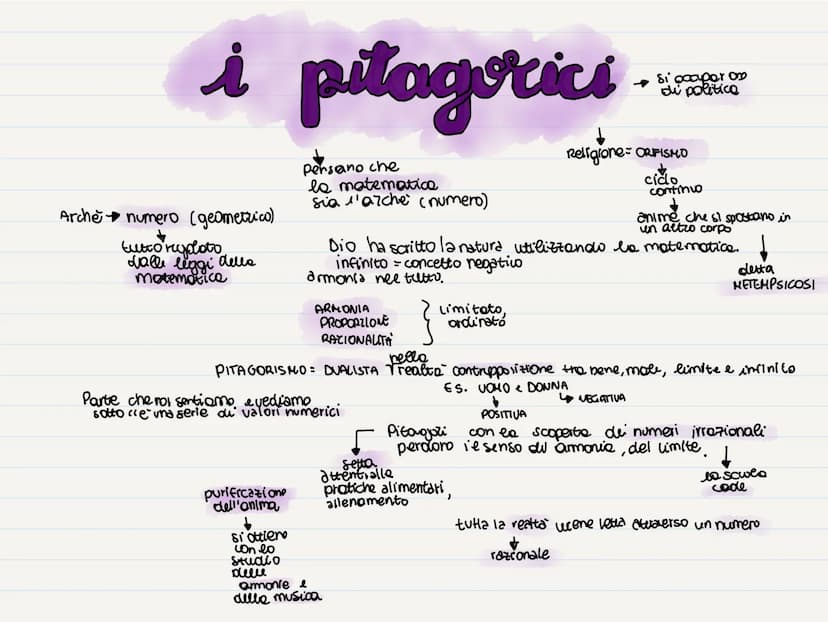 i pitagorici
si occupano
di politica
Religione = ORFISMO
ciclo
continuo
anime che si spostano in
un altro corpo
detta
METEMPSICOSI
pensano che
la matematica
sia l'archè (numero)
Archè → numero (geometrico)
tutto regolato
dalle leggi della
matematica
Dio ha scritto la natura utilizzando la matematica.
infinito = concetto negativo
armonia nel tutto.
ARMONIA
PROPORZIONE
RAZIONALITÀ
Limitato,
ordinato
nella
PITAGORISMO = DUALISTA realtà contrapposizione tra bene, male, limite e infinito
ES. UOMO e DONNA
NEGATIVA
POSITIVA
Parte che noi sentiamo e vediamo
sotto c'è una serie di valori numerici
con la scoperta dei numeri irrazionali
perdono il senso di armonia, del limite.
la scuola
cade
setta
attenti alle
pratiche alimentari,
allenamento
purificazione
dell'anima
si ottiene
con lo
studio
delle
armonie e
della musica
tutta la realtà viene letta attraverso un numero
razionale